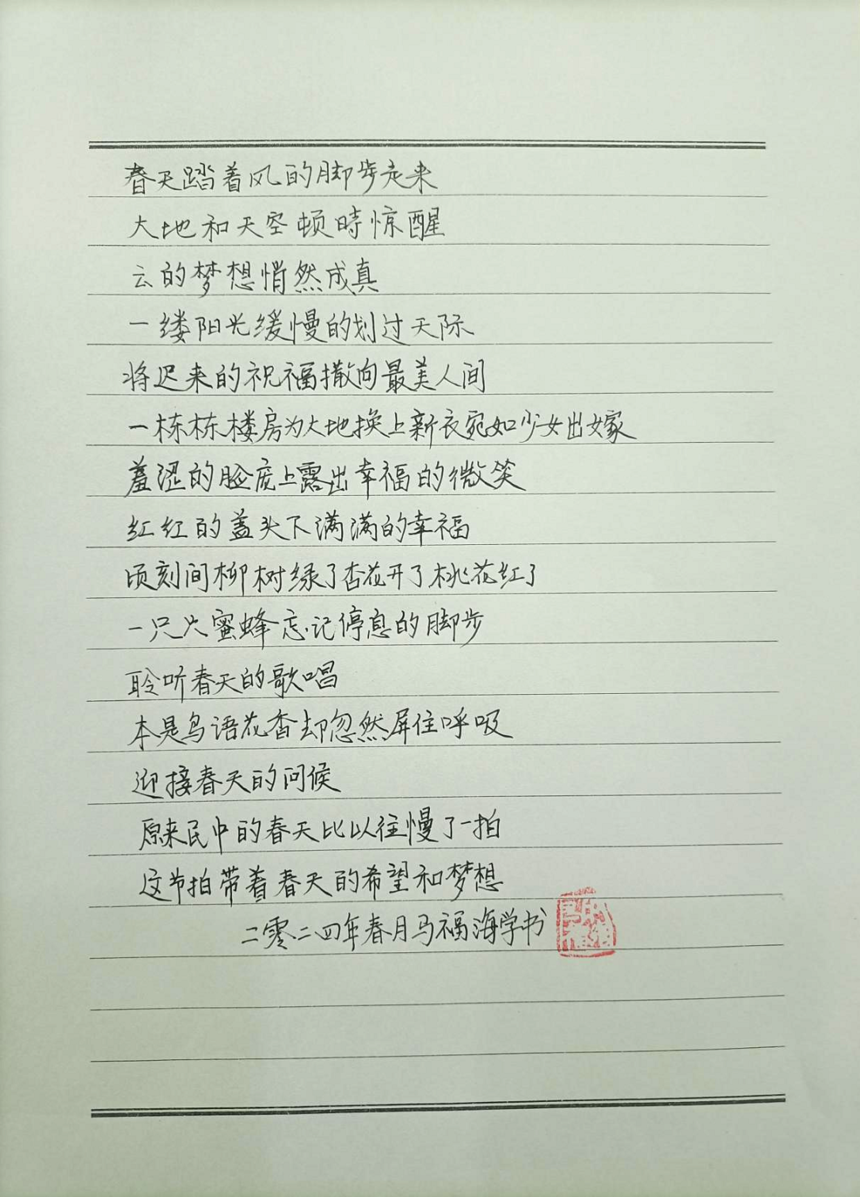 春天踏着风的脚步走来
大地和天空顿時惊醒
云的梦想悄然成真
一缕阳光缓慢的划过天际
将迟来的祝福撒向最美人间
一栋栋楼房为大地换上新衣宛如少女出嫁
羞涩的脸庞上露出幸福的微笑
红红的盖头下满满的幸福
顷刻间柳树绿了杏花开了桃花红了
一只只蜜蜂忘记停息的脚步
聆听春天的歌唱
本是鸟语花香却忽然屏住呼吸
迎接春天的问候
原来民中的春天比以往慢了一拍
这节拍带着春天的希望和梦想
二零二四年春月马福海学书